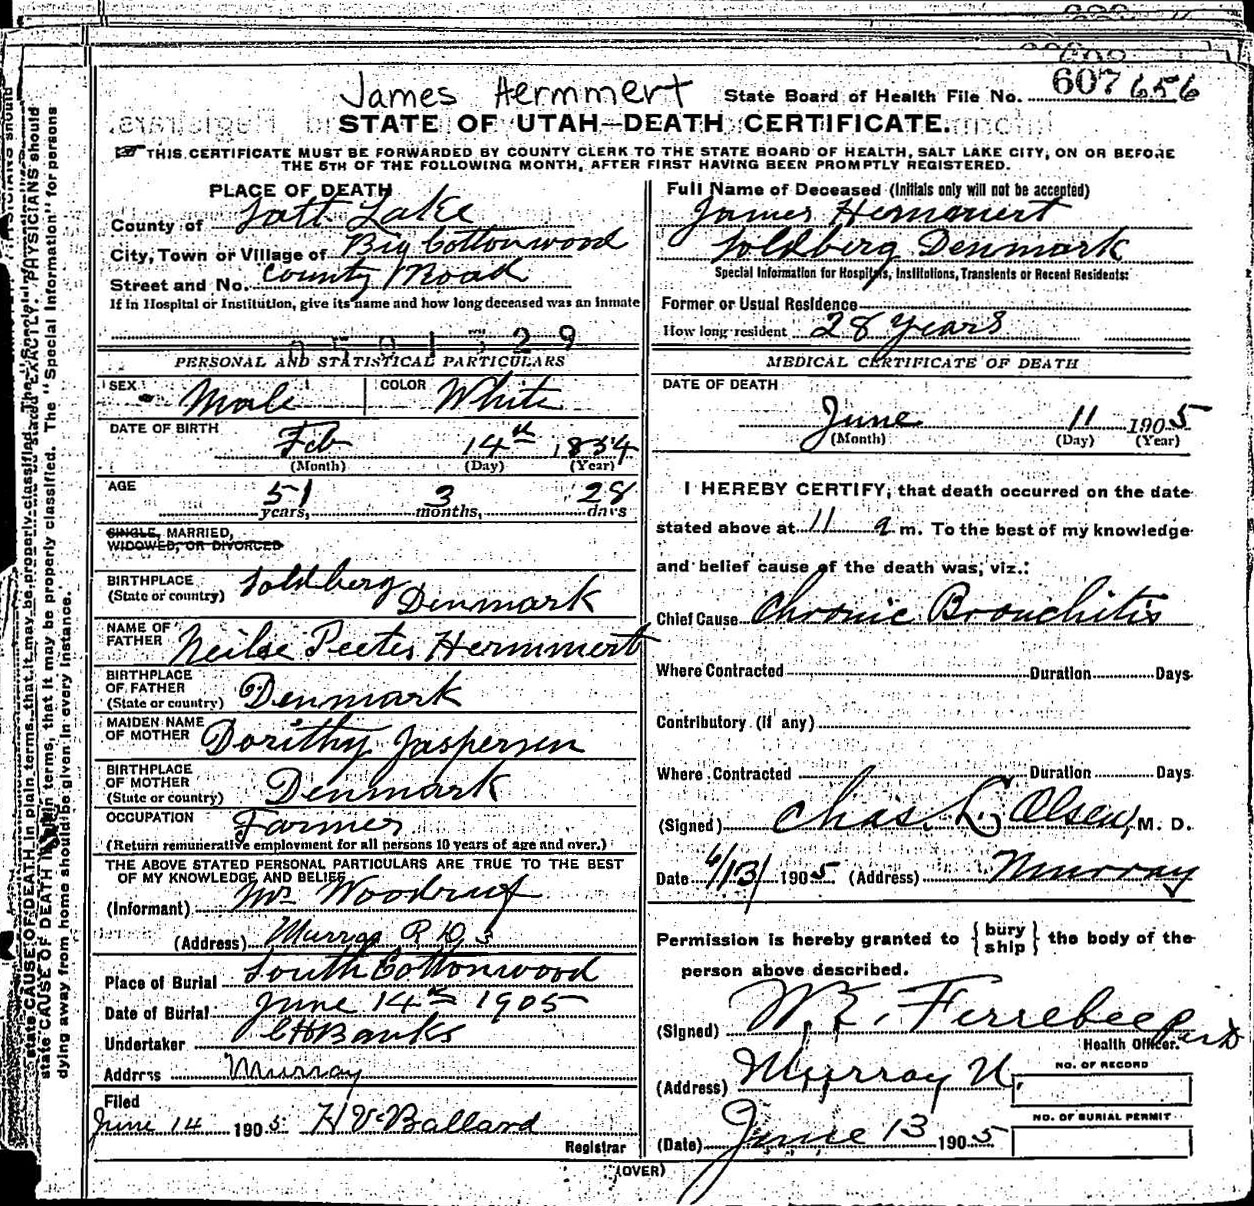 James Hermmert
State Board of Health File No. 607 656
STATE OF UTAH—DEATH CERTIFICATE.
THIS CERTIFICATE MUST BE FORWARDED BY COUNTY CLERK TO THE STATE BOARD OF HEALTH, SALT LAKE CITY, ON OR BEFORE
THE 5TH OF THE FOLLOWING MONTH, AFTER FIRST HAVING BEEN PROMPTLY REGISTERED.
PLACE OF DEATH
County of Salt Lake
City, Town or Village of Big Cottonwood
Street and No. County Road
If in Hospital or Institution, give its name and how long deceased was an inmate
PERSONAL AND STATISTICAL PARTICULARS
SEX Male COLOR White
DATE OF BIRTH
Feb 14th 1854
(Month) (Day) (Year)
AGE
51 3 28
years, months, days
SINGLE, MARRIED,
WIDOWED, OR DIVORCED
BIRTHPLACE
(State or country) Soldberg Denmark
NAME OF
FATHER Neilse Peeter Hermmert
BIRTHPLACE
OF FATHER
(State or country) Denmark
MAIDEN NAME
OF MOTHER Dorithy Jaspersen
BIRTHPLACE
OF MOTHER
(State or country) Denmark
OCCUPATION Farmer
(Return remunerative employment for all persons 10 years of age and over.)
THE ABOVE STATED PERSONAL PARTICULARS ARE TRUE TO THE BEST
OF MY KNOWLEDGE AND BELIEF
(Informant) Mr Woodruf
(Address) Murray R D 3
Place of Burial South Cottonwood
Date of Burial June 14th 1905
Undertaker C H Banks
Address Murray
Filed
June 14 1905 H V Ballard
Registrar
Full Name of Deceased (Initials only will not be accepted)
James Hermmert
Soldberg Denmark
Special Information for Hospitals, Institutions, Transients or Recent Residents:
Former or Usual Residence
How long resident 28 years
MEDICAL CERTIFICATE OF DEATH
DATE OF DEATH
June 11 1905
(Month) (Day) (Year)
I HEREBY CERTIFY, that death occurred on the date
stated above at 11 a m. To the best of my knowledge
and belief cause of the death was, viz.:
Chief Cause Chronic Bronchitis
Where Contracted Duration Days
Contributory (if any)
Where Contracted Duration Days
(Signed) Chas. L. Olsen, M. D.
Date 6/13/ 1905 (Address) Murray
Permission is hereby granted to {bury ship} the body of the
person above described.
(Signed) W. E. Ferrebee
Health Officer.
(Address) Murray U.
NO. OF RECORD
NO. OF BURIAL PERMIT
(Date) June 13 1905
(OVER)
state CAUSE OF DEATH in plain terms, that it may be properly classified.
state CAUSE OF DEATH in plain terms, that it may be properly classified. The "Special Information" for persons
dying away from home should be given in every instance.
stated EXACTLY. PHYSICIANS should